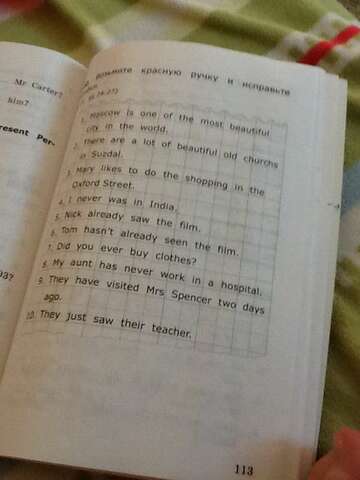 Mr Carter?
him?
resent Per-
93?
возьмите красную ручку и исправьте
1. Moscow is one of the most beautiful
city in the world.
2. There are a lot of beautiful old churchs
in Suzdal.
3. Mary likes to do the shopping in the
Oxford Street.
4. I never was in India.
5. Nick already saw the film.
6. Tom hasn't already seen the film.
7. Did you ever buy clothes?
8. My aunt has never work in a hospital.
9. They have visited Mrs Spencer two days
ago.
10. They just saw their teacher.
113